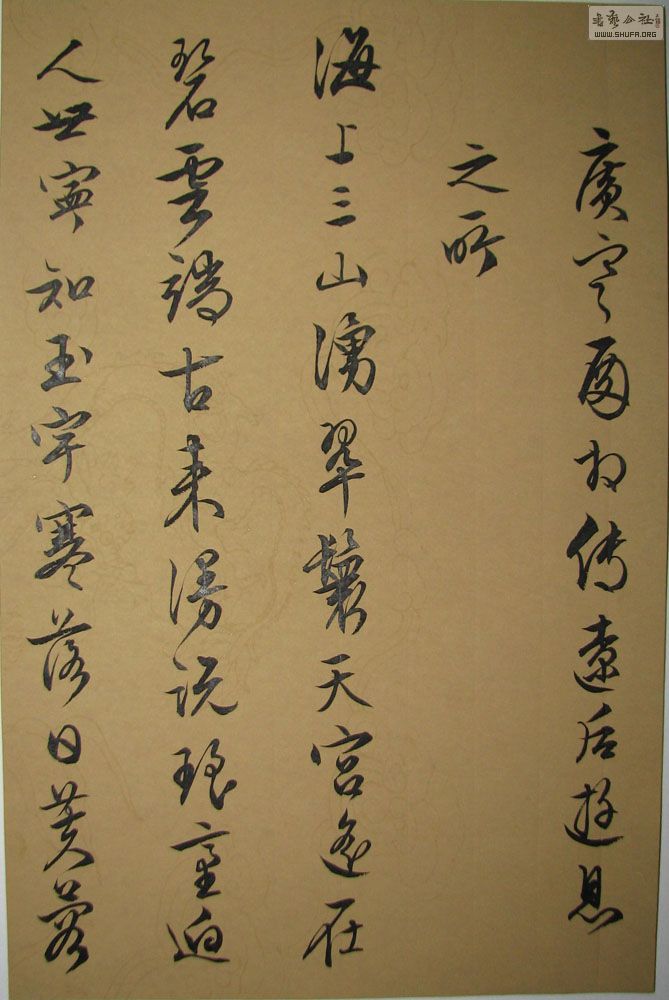 廣寒殿相传遼后遊息
之所
海上三山湧翠鬟天宮遙在
碧雲端古來漫說瑤臺迥
人世寧知玉宇寒落日芙蓉
書藝公社
WWW.SHUFA.ORG